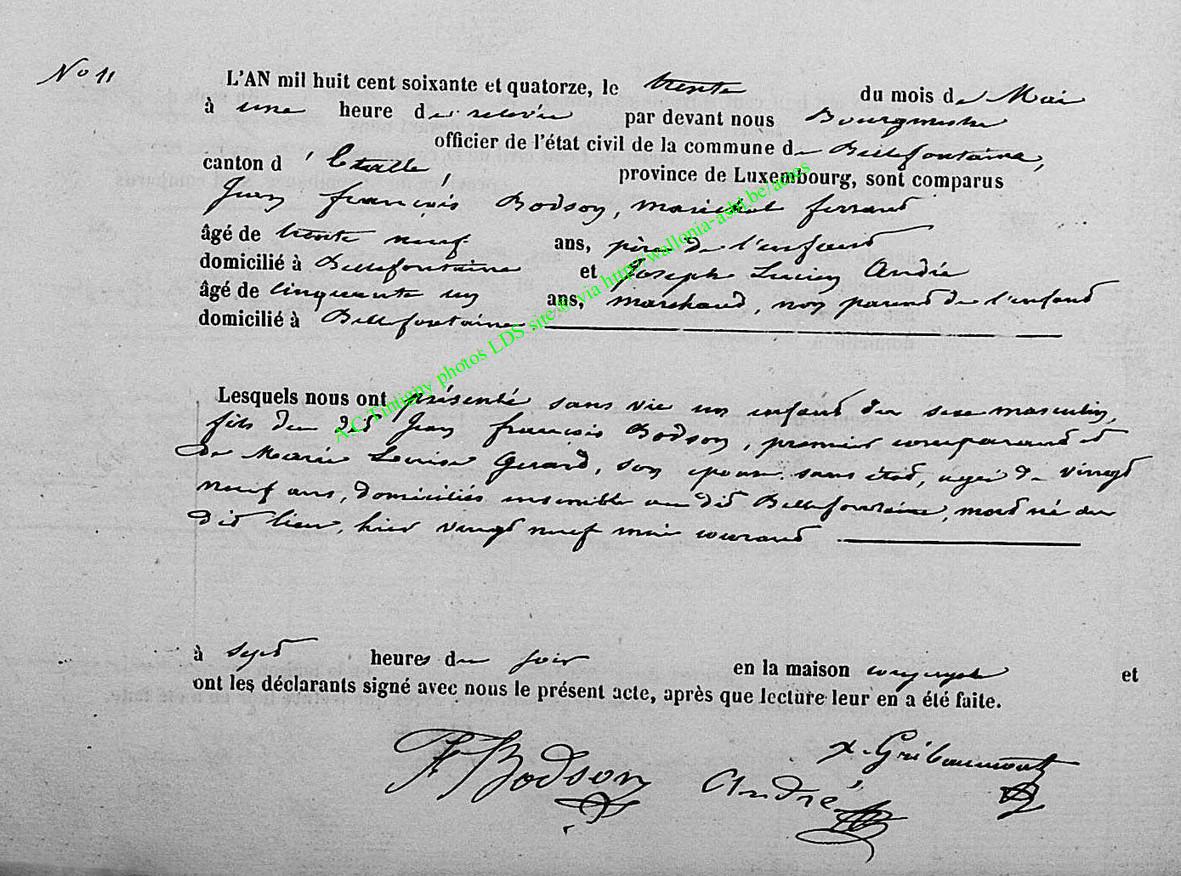 No 11
L'AN mil huit cent soixante et quatorze, le trente du mois de Mai
à une heure de relevée par devant nous Bourgmestre
officier de l'état civil de la commune de Bellefontaine,
canton d'Etalle, province de Luxembourg, sont comparus
Jean françois Bodson, maréchal ferrant
âgé de trente neuf ans, père de l'enfant
domicilié à Bellefontaine et Joseph Lucien André
âgé de cinquante un ans, marchand, non parent de l'enfant
domicilié à Bellefontaine
Lesquels nous ont présenté sans vie un enfant du sexe masculin,
fils du dit Jean françois Bodson, premier comparant et
de Marie Louise Gerard, son épouse sans état, agée de vingt
neuf ans, domiciliés ensemble au dit Bellefontaine, mort né au
dit lieu, hier vingt neuf mai courant
à sept heures du soir en la maison et
ont les déclarants signé avec nous le présent acte, après que lecture leur en a été faite.
F Bodson André x. Gribaumont
A.C. Tintigny photos LDS site © via http:/wallonia-asbl.be/actes